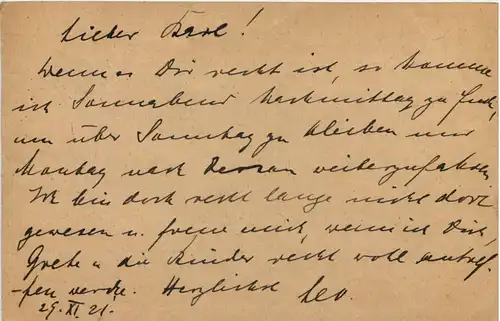 Lieber Karl!
Wenn es Dir recht ist, so komme
ich Sonnabend Nachmittag zu Euch,
um über Sonntag zu bleiben und
Montag nach Dessau weiterzufahren.
Ich bin doch recht lange nicht dort
gewesen u. freue mich, wenn ich Dich,
Grete u. die Kinder recht wohl antref-
-fen werde. Herzlichst Leo.
29. XI. 21.